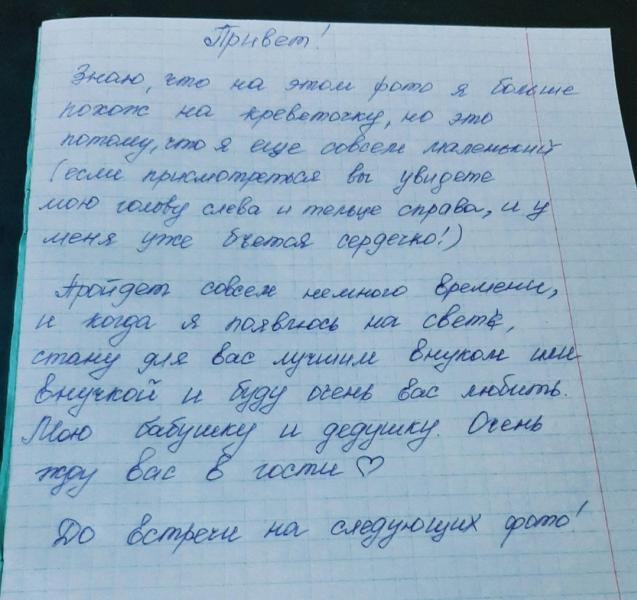 Привет!
Знаю, что на этом фото я больше
похож на креветочку, но это
потому, что я еще совсем маленький
(если присмотреться вы увидете
мою голову слева и тельце справа, и у
меня уже бьется сердечко!)
Пройдет совсем немного времени,
и когда я появлюсь на свете,
стану для вас лучшим внуком или
внучкой и буду очень вас любить.
Мою бабушку и дедушку. Очень
жду вас в гости ♡
До встречи на следующих фото!